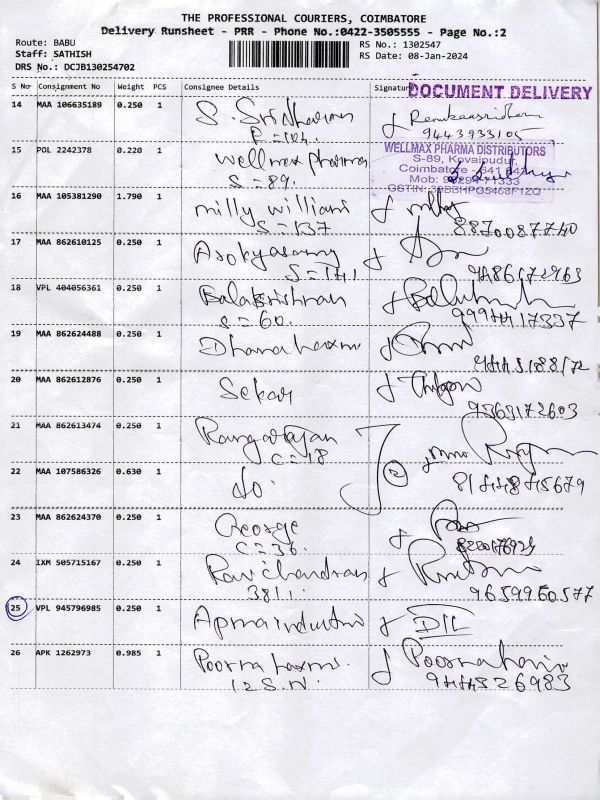 THE PROFESSIONAL COURIERS, COIMBATORE
Delivery Runsheet - PRR - Phone No.:0422-3505555 - Page No.:2
Route: BABU
Staff: SATHISH
DRS No.: DCJB130254702
RS No.: 1302547
RS Date: 08-Jan-2024
S No Consignment No Weight PCS Consignee Details Signature
DOCUMENT DELIVERY
14 MAA 106635189 0.250 1 S. Sridharan
P=104.
9443933105
15 POL 2242378 0.220 1 Wellmax pharma
S=89.
WELLMAX PHARMA DISTRIBUTORS
S-89, Kovaipudur,
Coimbatore - 641 042
Mob:
GSTIN:
16 MAA 105381290 1.790 1 milly williams
S=137
milly
8870087740
17 MAA 862610125 0.250 1 Arokyasamy
S=141
9486172963
18 VPL 404056361 0.250 1 Balakrishnan
S=60.
19 MAA 862624488 0.250 1 Dhanalaxmi
20 MAA 862612876 0.250 1 Sekar
9363172603
21 MAA 862613474 0.250 1 Rangarajan
C=18
22 MAA 107586326 0.630 1 do.
2
23 MAA 862624370 0.250 1 George
C=36.
24 IXM 505715167 0.250 1 Ravichandran
381.
9659960577
25 VPL 945796985 0.250 1 Apma industri
26 APK 1262973 0.985 1 Poorna laxmi.
12 S.N.
9444526983